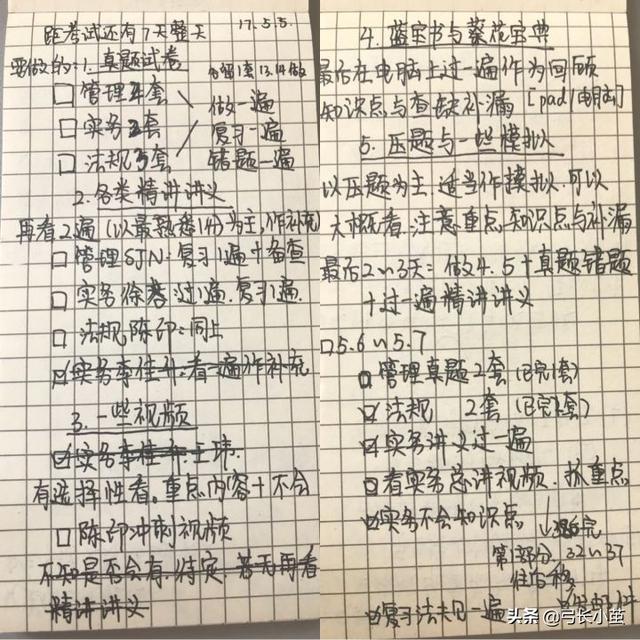 距考试还有7天整天 17.5.5.
要做的:1. 真题试卷
各留1套 13.14做
□ 管理4套
□ 实务2套
□ 法规3套
做一遍
复习一遍
错题一遍
2. 各类精讲讲义
再看2遍 (以最熟悉1份)为主,作补充
□ 管理SJN:复习1遍+备查
□ 实务徐蓉:过1遍.复习1遍.
□ 法规陈印:同上
实务李佳升:看一遍作补充
3. 一些视频
实务李佳升.王玮.
有选择性看。重点内容+不会
□ 陈印冲刺视频
不知是否会有.待定.若无再看
精讲讲义
4. 蓝宝书与葵花宝典
最后在电脑上过一遍作为回顾
知识点与查缺补漏 [pad/电脑]
5. 压题与一些模拟
以压题为主.适当作模拟.可以
大概看.注意重点.知识点与补漏
最后2~3天:做4.5+真题错题
+过一遍精讲讲义
□5.6~5.7
管理真题2套(已完1套)
法规 2套(已完1套)
实务讲义过一遍
看实务总讲视频.抓重点
实务不会知识点
第1部分 32~37
复习法规一遍
头条 @弓长小茧